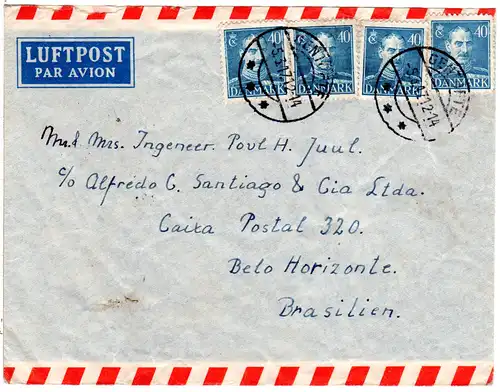 LUFTPOST
PAR AVION
40 40 40 40
DANMARK DANMARK DANMARK DANMARK
GENTOFTE
-5.3.47.12-14
GENTOFTE
-5.3.47.12-14
Mr. & Mrs. Ingeneer Povl H. Juul.
c/o Alfredo C. Santiago & Cia Ltda.
Caixa Postal 320.
Belo Horizonte.
Brasilien.